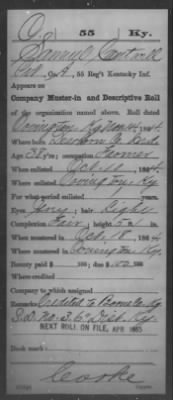 C | 55 | Ky.
Samuel Cantrell
Pvt., Co. A, 55 Reg't Kentucky Inf.
Appears on
Company Muster-in and Descriptive Roll
of the organization named above. Roll dated
Covington, Ky Nov 14, 1864
Where born Dearborn Co. Ind.
Age 38 y'rs; occupation Farmer
When enlisted Oct. 11, 1864
Where enlisted Covington, Ky.
For what period enlisted years.
Eyes Grey; hair Light
Complexion Fair; height 5 ft. in.
When mustered in Oct. 18, 1864
Where mustered in Covington Ky.
Bounty paid $ 100; due $ 100
Where credited
Company to which assigned
Remarks: Credited to Boone Co. Ky
S.D. No. 3, 6" Dist. Ky.
NEXT ROLL ON FILE, APR 1865
Book mark:
Cooke